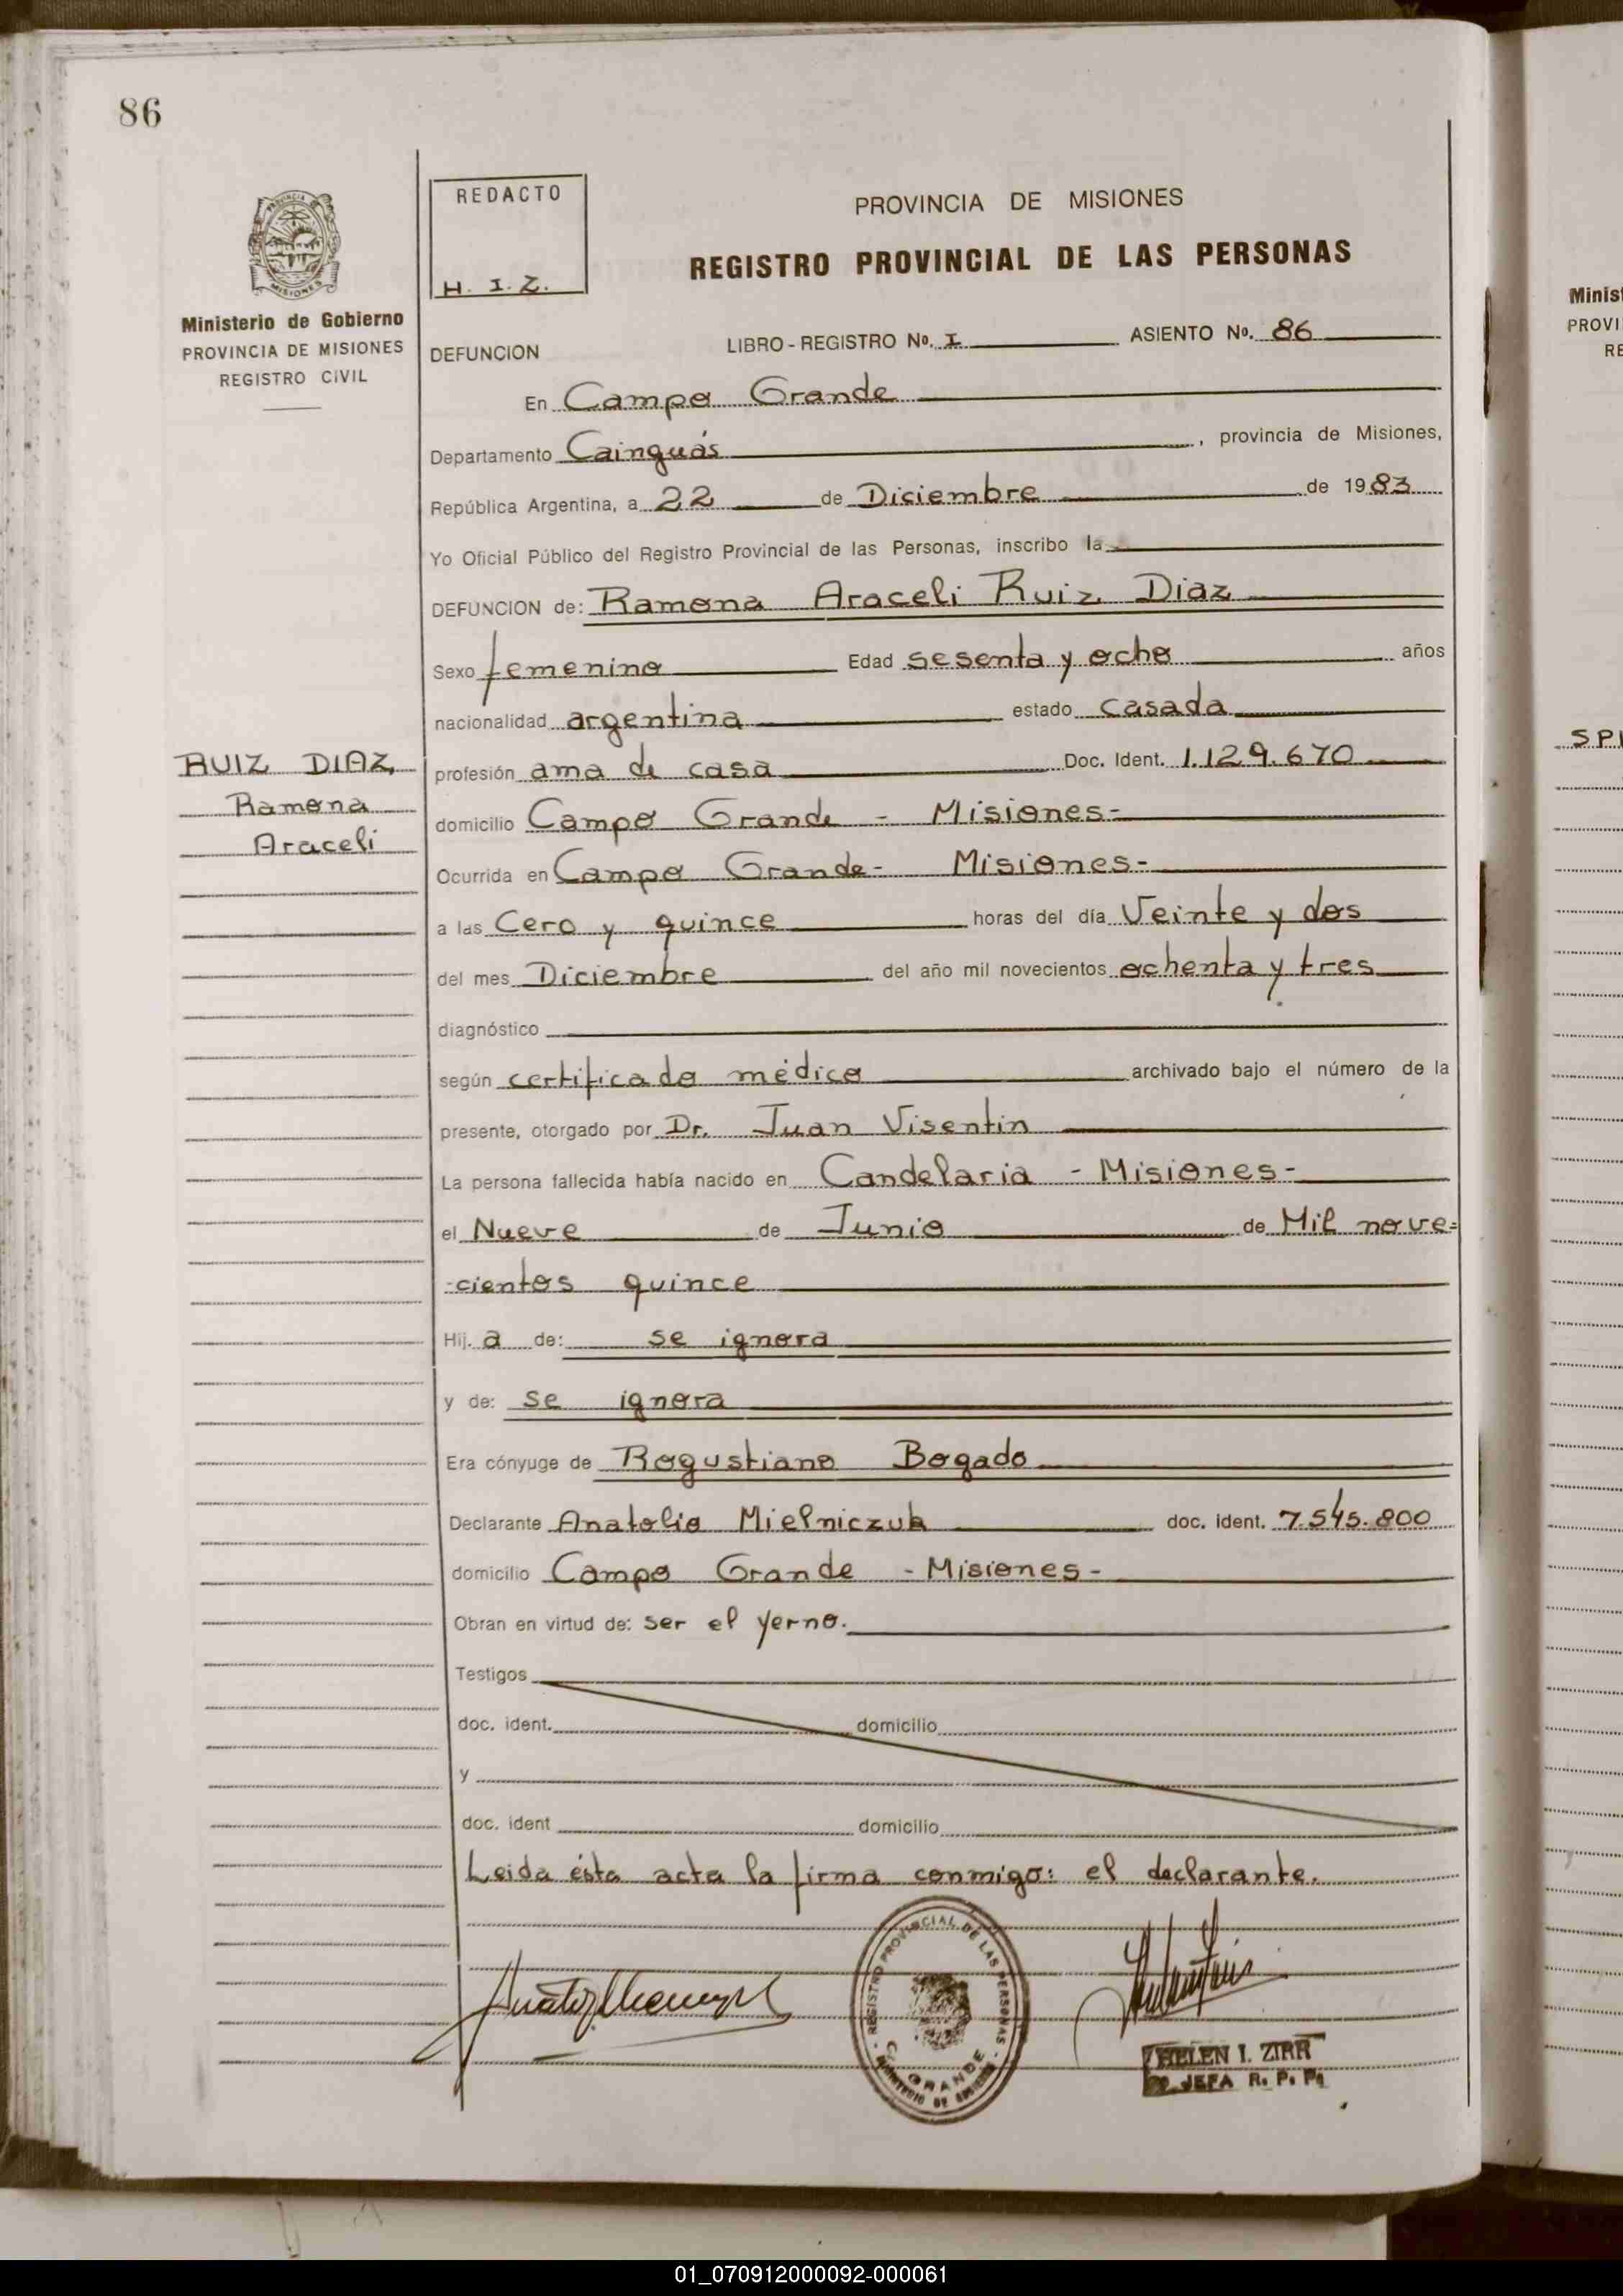 86
REDACTO
H. I. Z.
PROVINCIA DE MISIONES
REGISTRO PROVINCIAL DE LAS PERSONAS
MISIONES
Ministerio de Gobierno
PROVINCIA DE MISIONES
REGISTRO CIVIL
DEFUNCION
LIBRO - REGISTRO No. I ASIENTO No. 86
En Campo Grande
Departamento Cainguás, provincia de Misiones,
República Argentina, a 22 de Diciembre de 1983
Yo Oficial Público del Registro Provincial de las Personas, inscribo la
DEFUNCION de: Ramona Araceli Ruiz Diaz
Sexo femenino Edad sesenta y ocho años
nacionalidad argentina estado casada
RUIZ DIAZ,
Ramona
Araceli
profesión ama de casa Doc. Ident. 1.129.670
domicilio Campo Grande - Misiones-
Ocurrida en Campo Grande- Misiones-
a las Cero y quince horas del día Veinte y dos
del mes Diciembre del año mil novecientos ochenta y tres
diagnóstico
según certificado médico archivado bajo el número de la
presente, otorgado por Dr. Juan Visentin
La persona fallecida había nacido en Candelaria - Misiones-
el Nueve de Junio de Mil nove=
-cientos quince
Hij. a de: se ignora
y de: se ignora
Era cónyuge de Rogustiano Bogado
Declarante Anatolio Mielniczuk doc. ident. 7.545.800
domicilio Campo Grande - Misiones-
Obran en virtud de: ser el yerno.
Testigos
doc. ident. domicilio
y
doc. ident domicilio
Leida ésta acta la firma conmigo: el declarante.
REGISTRO PROVINCIAL DE LAS PERSONAS
C. GRANDE
HELEN I. ZIRR
JEFA R. P. P.
Minist
PROVI
RE
SPI
01_070912000092-000061